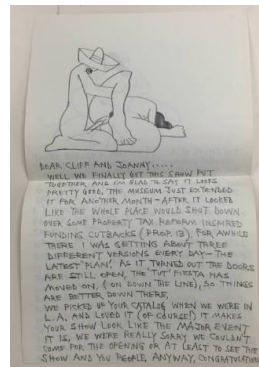 DEAR CLIFF AND JOANNY.....
WELL WE FINALLY GOT THIS SHOW PUT
TOGETHER AND I'M GLAD TO SAY IT LOOKS
PRETTY GOOD, THE MUSEUM JUST EXTENDED
IT FOR ANOTHER MONTH – AFTER IT LOOKED
LIKE THE WHOLE PLACE WOULD SHUT DOWN
OVER SOME PROPERTY TAX REFORM INSPIRED
FUNDING CUTBACKS (PROP. 13). FOR AWHILE
THERE I WAS GETTING ABOUT THREE
DIFFERENT VERSIONS EVERY DAY – THE
LATEST 'PLAN'. AS IT TURNED OUT THE DOORS
ARE STILL OPEN, THE 'TUT' FIESTA HAS
MOVED ON, (ON DOWN THE LINE), SO THINGS
ARE BETTER DOWN THERE,
WE PICKED UP YOUR CATALOG WHEN WE WERE IN
L.A. AND LOVED IT (OF COURSE!) IT MAKES
YOUR SHOW LOOK LIKE THE MAJOR EVENT
IT IS, WE WERE REALLY SORRY WE COULDN'T
COME FOR THE OPENING OR AT LEAST TO SEE THE
SHOW AND YOU PEOPLE, ANYWAY, CONGRATULATIONS